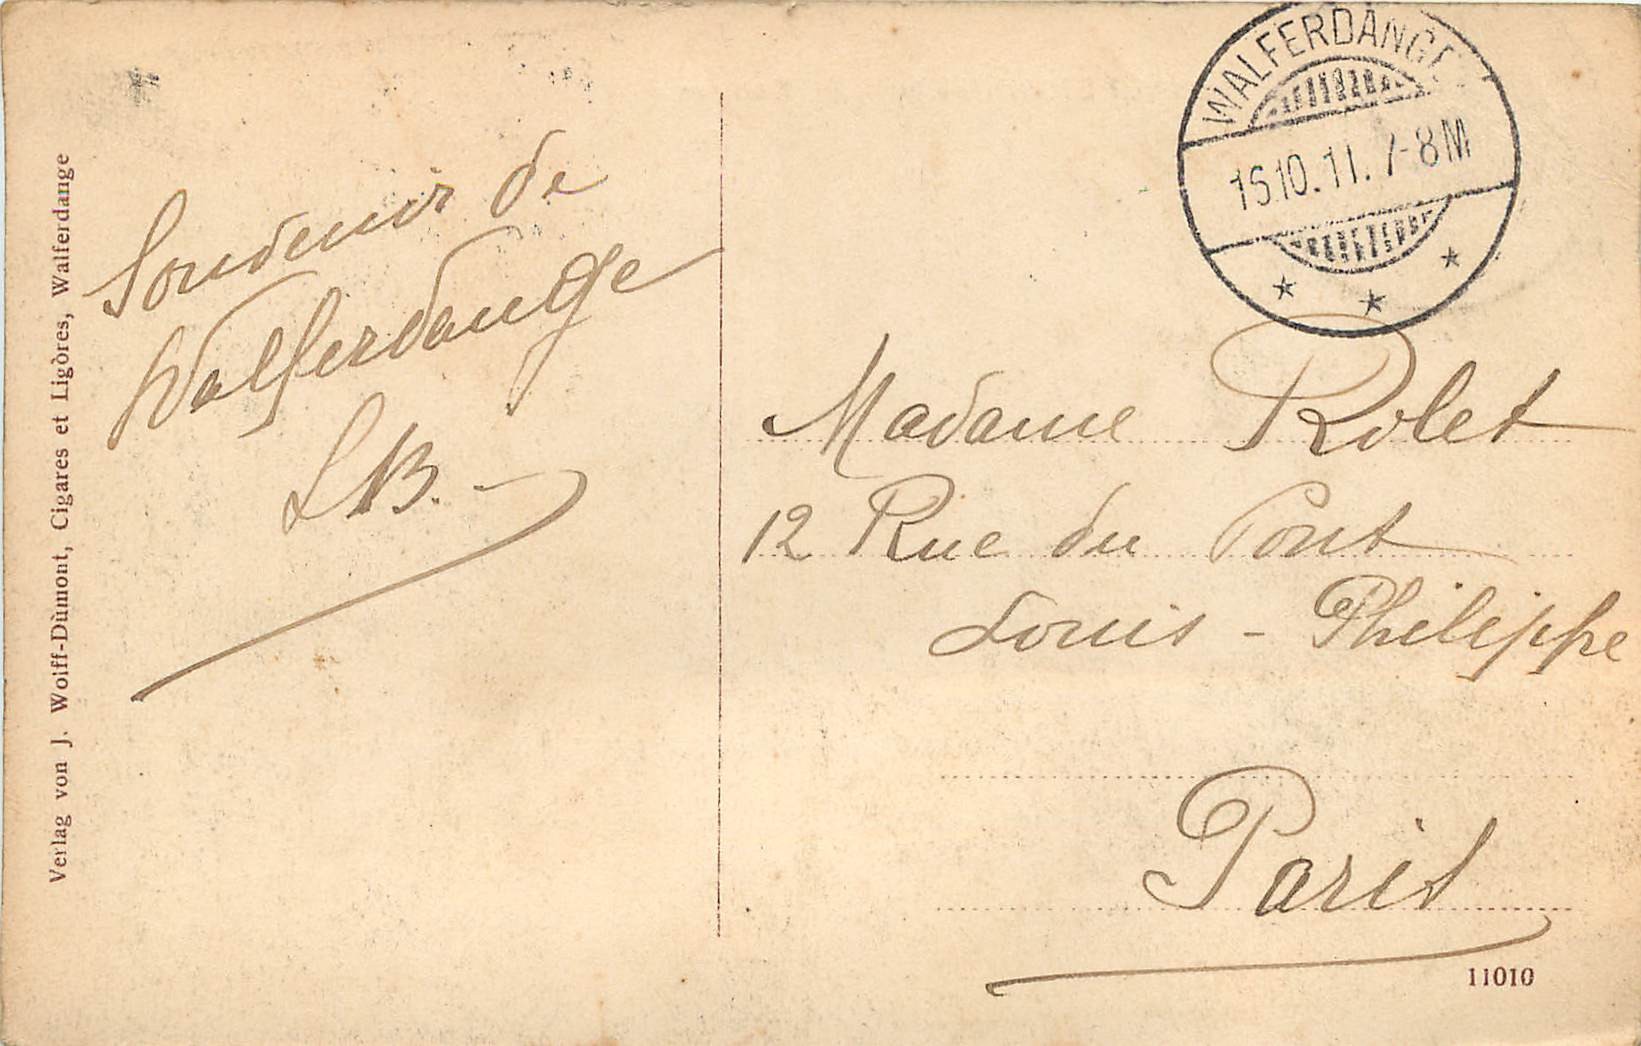 Verlag von J. Wolff-Dùmont, Cigares et Ligòres, Walferdange
Souvenir de
Walferdange
LB. -
WALFERDANGE
7-8M
Madame Rolet
12 Rue du Pont
Louis - Philippe
Paris
11010